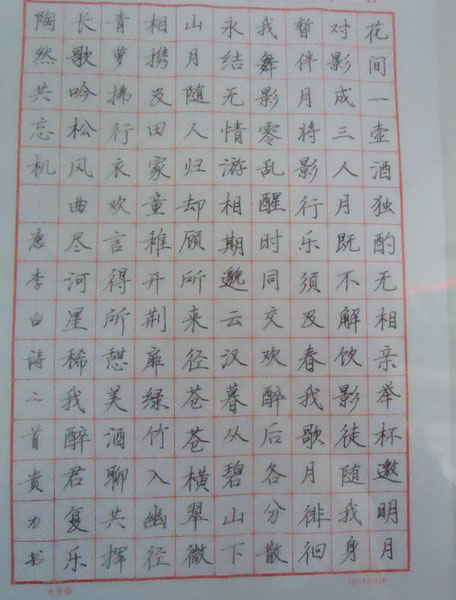 花间一壶酒独酌无相亲举杯邀明月
对影成三人月既不解饮影徒随我身
暂伴月将影行乐须及春我歌月徘徊
我舞影零乱醒时同交欢醉后各分散
永结无情游相期邈云汉暮从碧山下
山月随人归却顾所来径苍苍横翠微
相携及田家童稚开荆扉绿竹入幽径
青萝拂行衣欢言得所憩美酒聊共挥
长歌吟松风曲尽河星稀我醉君复乐
陶然共忘机 李白诗二首贵力书